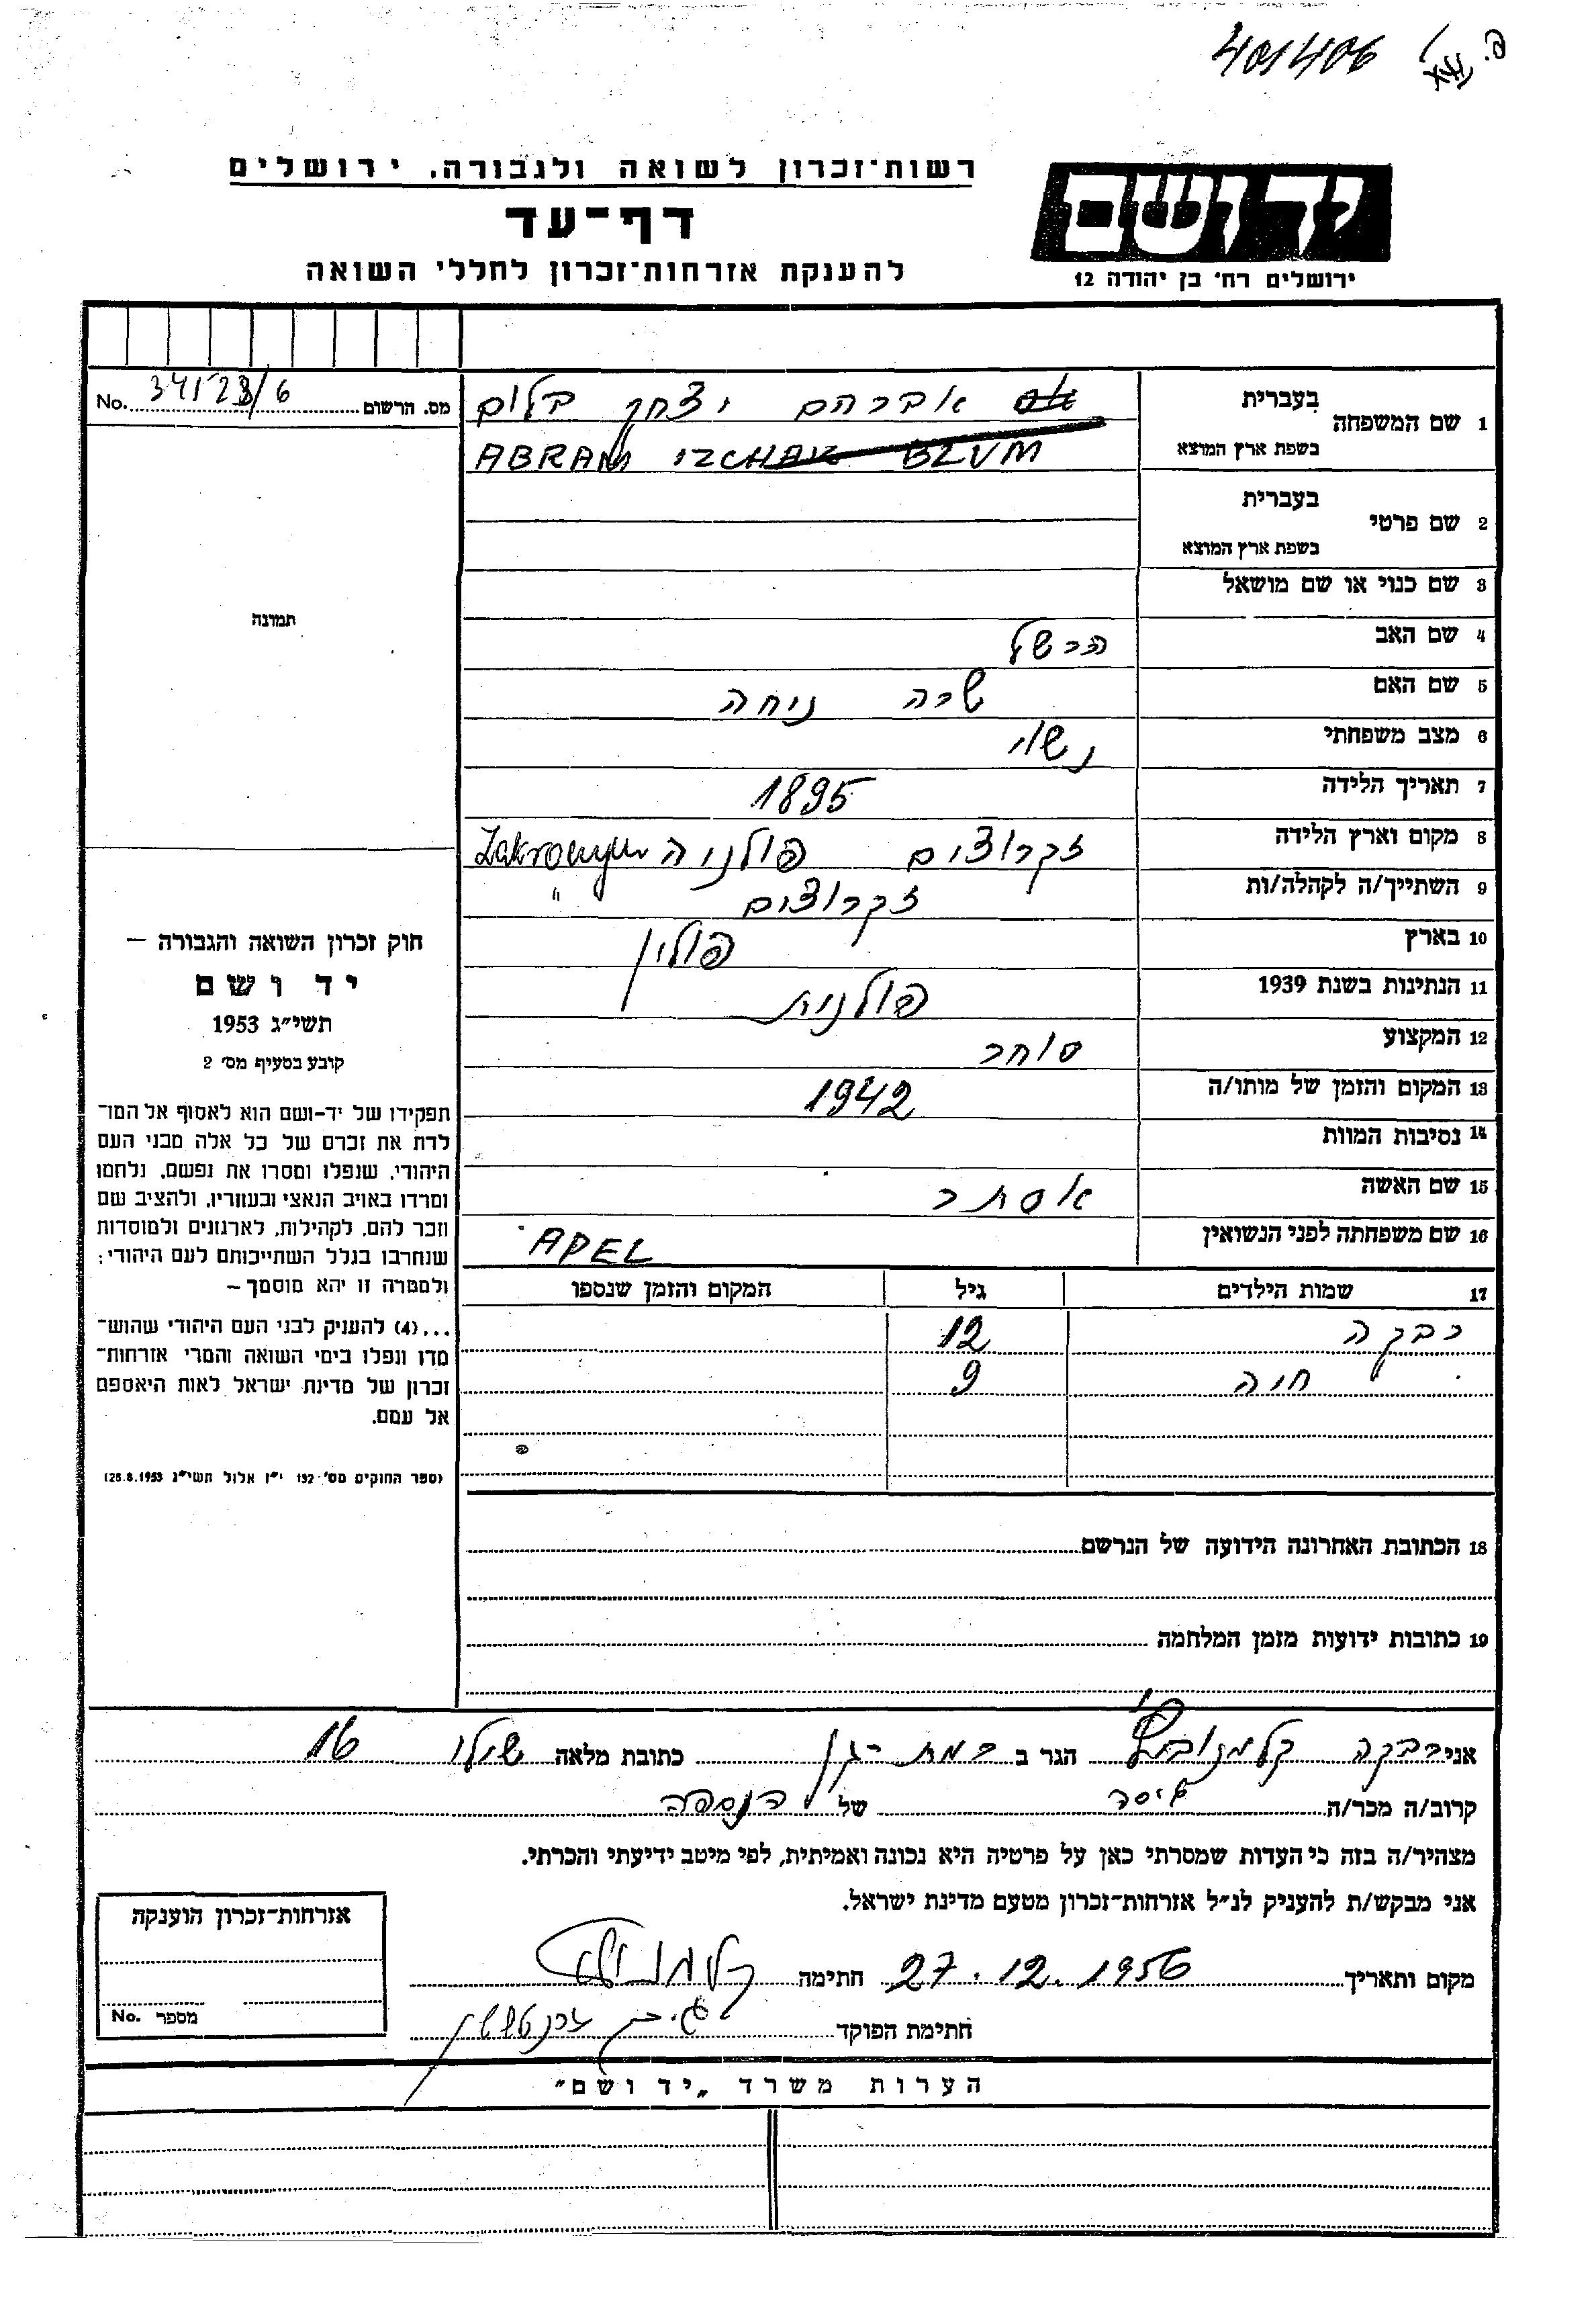 401406
רשות־זכרון לשואה ולגבורה, ירושלים
דף־עד
להענקת אזרחות־זכרון לחללי השואה
יד ושם
ירושלים רח' בן יהודה 12
מס. הרשום 34123/6 No.
1 שם המשפחה בעברית אברהם יצחק בלום
בשפת ארץ המוצא ABRAM IZCHAK BLUM
2 שם פרטי בעברית
בשפת ארץ המוצא
3 שם כנוי או שם מושאל
4 שם האב הרשל
5 שם האם שרה ניחה
6 מצב משפחתי נשוי
7 תאריך הלידה 1895
8 מקום וארץ הלידה זקרוצים פולניה
9 השתייך/ה לקהלה/ות זקרוצים "
10 בארץ פולין
11 הנתינות בשנת 1939 פולנית
12 המקצוע סוחר
13 המקום והזמן של מותו/ה 1942
14 נסיבות המוות
15 שם האשה אסתר
16 שם משפחתה לפני הנשואין APEL
17 שמות הילדים גיל המקום והזמן שנספו
רבקה 12
חוה 9
18 הכתובת האחרונה הידועה של הנרשם
19 כתובות ידועות מזמן המלחמה
תמונה
חוק זכרון השואה והגבורה —
יד ושם
תשי״ג 1953
קובע בסעיף מס' 2
תפקידו של יד-ושם הוא לאסוף אל המו־
לדת את זכרם של כל אלה מבני העם
היהודי, שנפלו ומסרו את נפשם, נלחמו
ומרדו באויב הנאצי ובעוזריו, ולהציב שם
וזכר להם, לקהילות, לארגונים ולמוסדות
שנחרבו בגלל השתייכותם לעם היהודי;
ולמטרה זו יהא מוסמך –
...(4) להעניק לבני העם היהודי שהוש־
מדו ונפלו בימי השואה והמרי אזרחות־
זכרון של מדינת ישראל לאות היאספם
אל עמם.
(ספר החוקים מס' 132 י״ז אלול תשי״ג 28.8.1953)
אני רבקה קלמנוביץ הגר ב רמת-גן כתובת מלאה שילו 16
קרוב/ה מכר/ה גיסה של הנספה
מצהיר/ה בזה כי העדות שמסרתי כאן על פרטיה היא נכונה ואמיתית, לפי מיטב ידיעתי והכרתי.
אני מבקש/ת להעניק לנ״ל אזרחות־זכרון מטעם מדינת ישראל.
מקום ותאריך 27.12.1956 חתימה
חתימת הפוקד
אזרחות־זכרון הוענקה
מספר No.
הערות משרד „יד ושם״